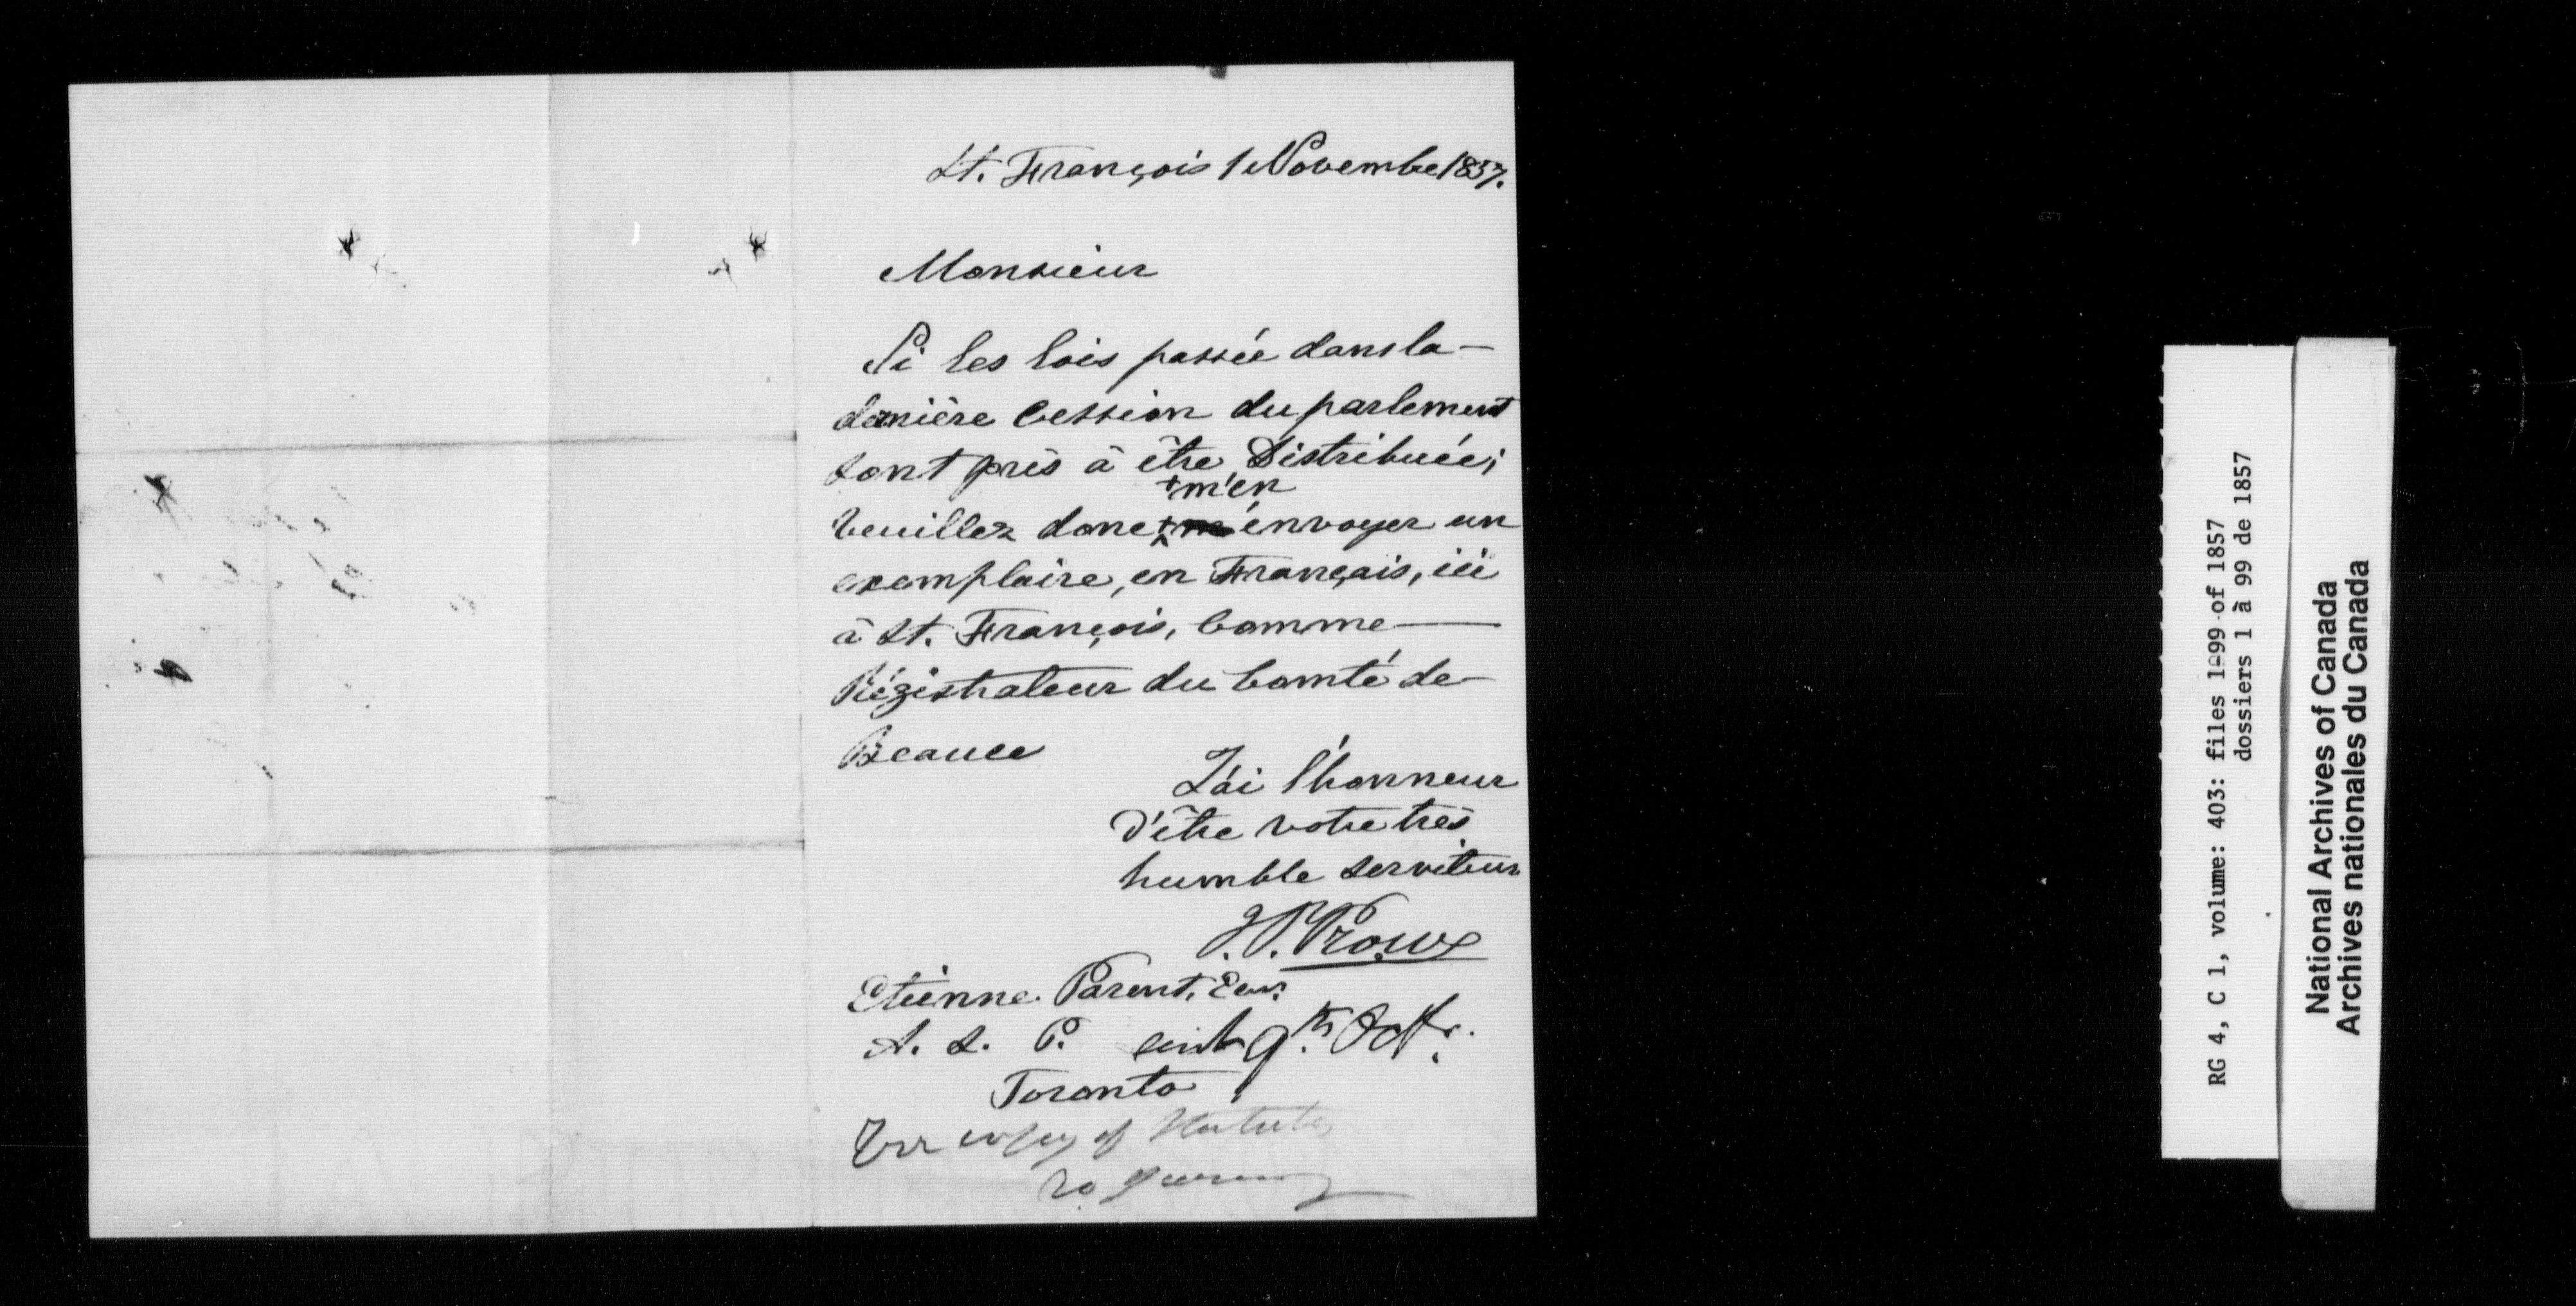 St. François 1 Novembe 1857.
Monsieur
Si les lois passée dans la-
dernière Cession du parlement
sont près à être Distribuée;
+m'en
Veuillez donc + envoyer un
exemplaire, en Français, ici
à St. François, Comme
Régistrateur du Comté de-
Beauce
J'ai l'honneur
d'être votre très
humble serviteur
J.P. Proux
Etienne Parent, Ecur.
A. S. P.
Toronto
copy of Statutes
RG 4, C 1, volume: 403: files 1-99 of 1857
dossiers 1 à 99 de 1857
National Archives of Canada
Archives nationales du Canada